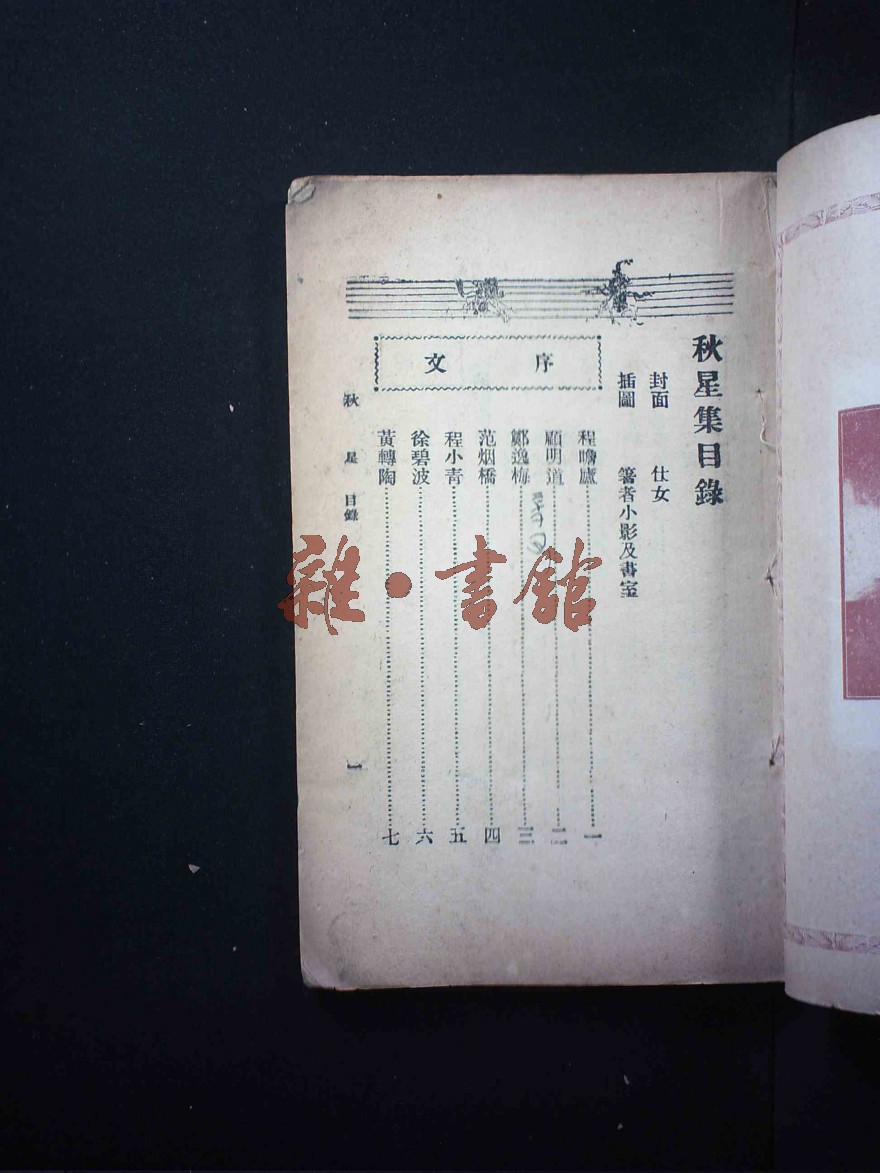 秋星集目錄
封面 仕女
插圖 箸者小影及書室
序文
程瞻廬 一
顧明道 二
鄭逸梅 三
范烟橋 四
程小青 五
徐碧波 六
黃轉陶 七
秋星 目錄 一
雜·書館